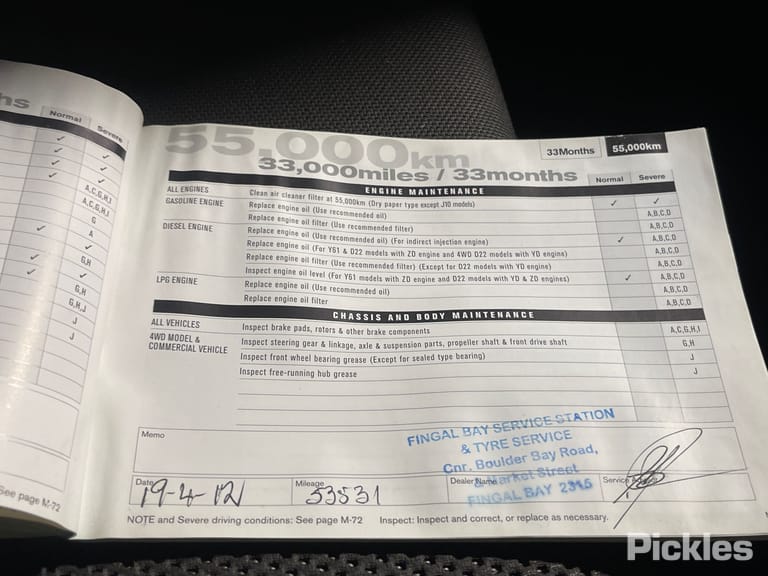 hs
Normal
Severe
A,C,G,H,I
A,C,G,H,I
G
A
G,H
G,H
G,H,J
J
J
See page M-72
55,000km
33,000miles / 33months
33Months
55,000km
ENGINE MAINTENANCE
Normal
Severe
ALL ENGINES
Clean air cleaner filter at 55,000km (Dry paper type except J10 models)
✓ ✓
GASOLINE ENGINE
Replace engine oil (Use recommended oil)
A,B,C,D
Replace engine oil filter (Use recommended filter)
A,B,C,D
DIESEL ENGINE
Replace engine oil (Use recommended oil) (For indirect injection engine)
✓ A,B,C,D
Replace engine oil (For Y61 & D22 models with ZD engine and 4WD D22 models with YD engine)
A,B,C,D
Replace engine oil filter (Use recommended filter) (Except for D22 models with YD engine)
A,B,C,D
Inspect engine oil level (For Y61 models with ZD engine and D22 models with YD & ZD engines)
✓ A,B,C,D
LPG ENGINE
Replace engine oil (Use recommended oil)
A,B,C,D
Replace engine oil filter
A,B,C,D
CHASSIS AND BODY MAINTENANCE
ALL VEHICLES
Inspect brake pads, rotors & other brake components
A,C,G,H,I
4WD MODEL &
COMMERCIAL VEHICLE
Inspect steering gear & linkage, axle & suspension parts, propeller shaft & front drive shaft
G,H
Inspect front wheel bearing grease (Except for sealed type bearing)
J
Inspect free-running hub grease
J
Memo
FINGAL BAY SERVICE STATION
& TYRE SERVICE
Cnr. Boulder Bay Road,
& Market Street
FINGAL BAY 2315
Date
19-4-12
Mileage
53531
Dealer Name
Service
NOTE and Severe driving conditions: See page M-72
Inspect: Inspect and correct, or replace as necessary.
Pickles